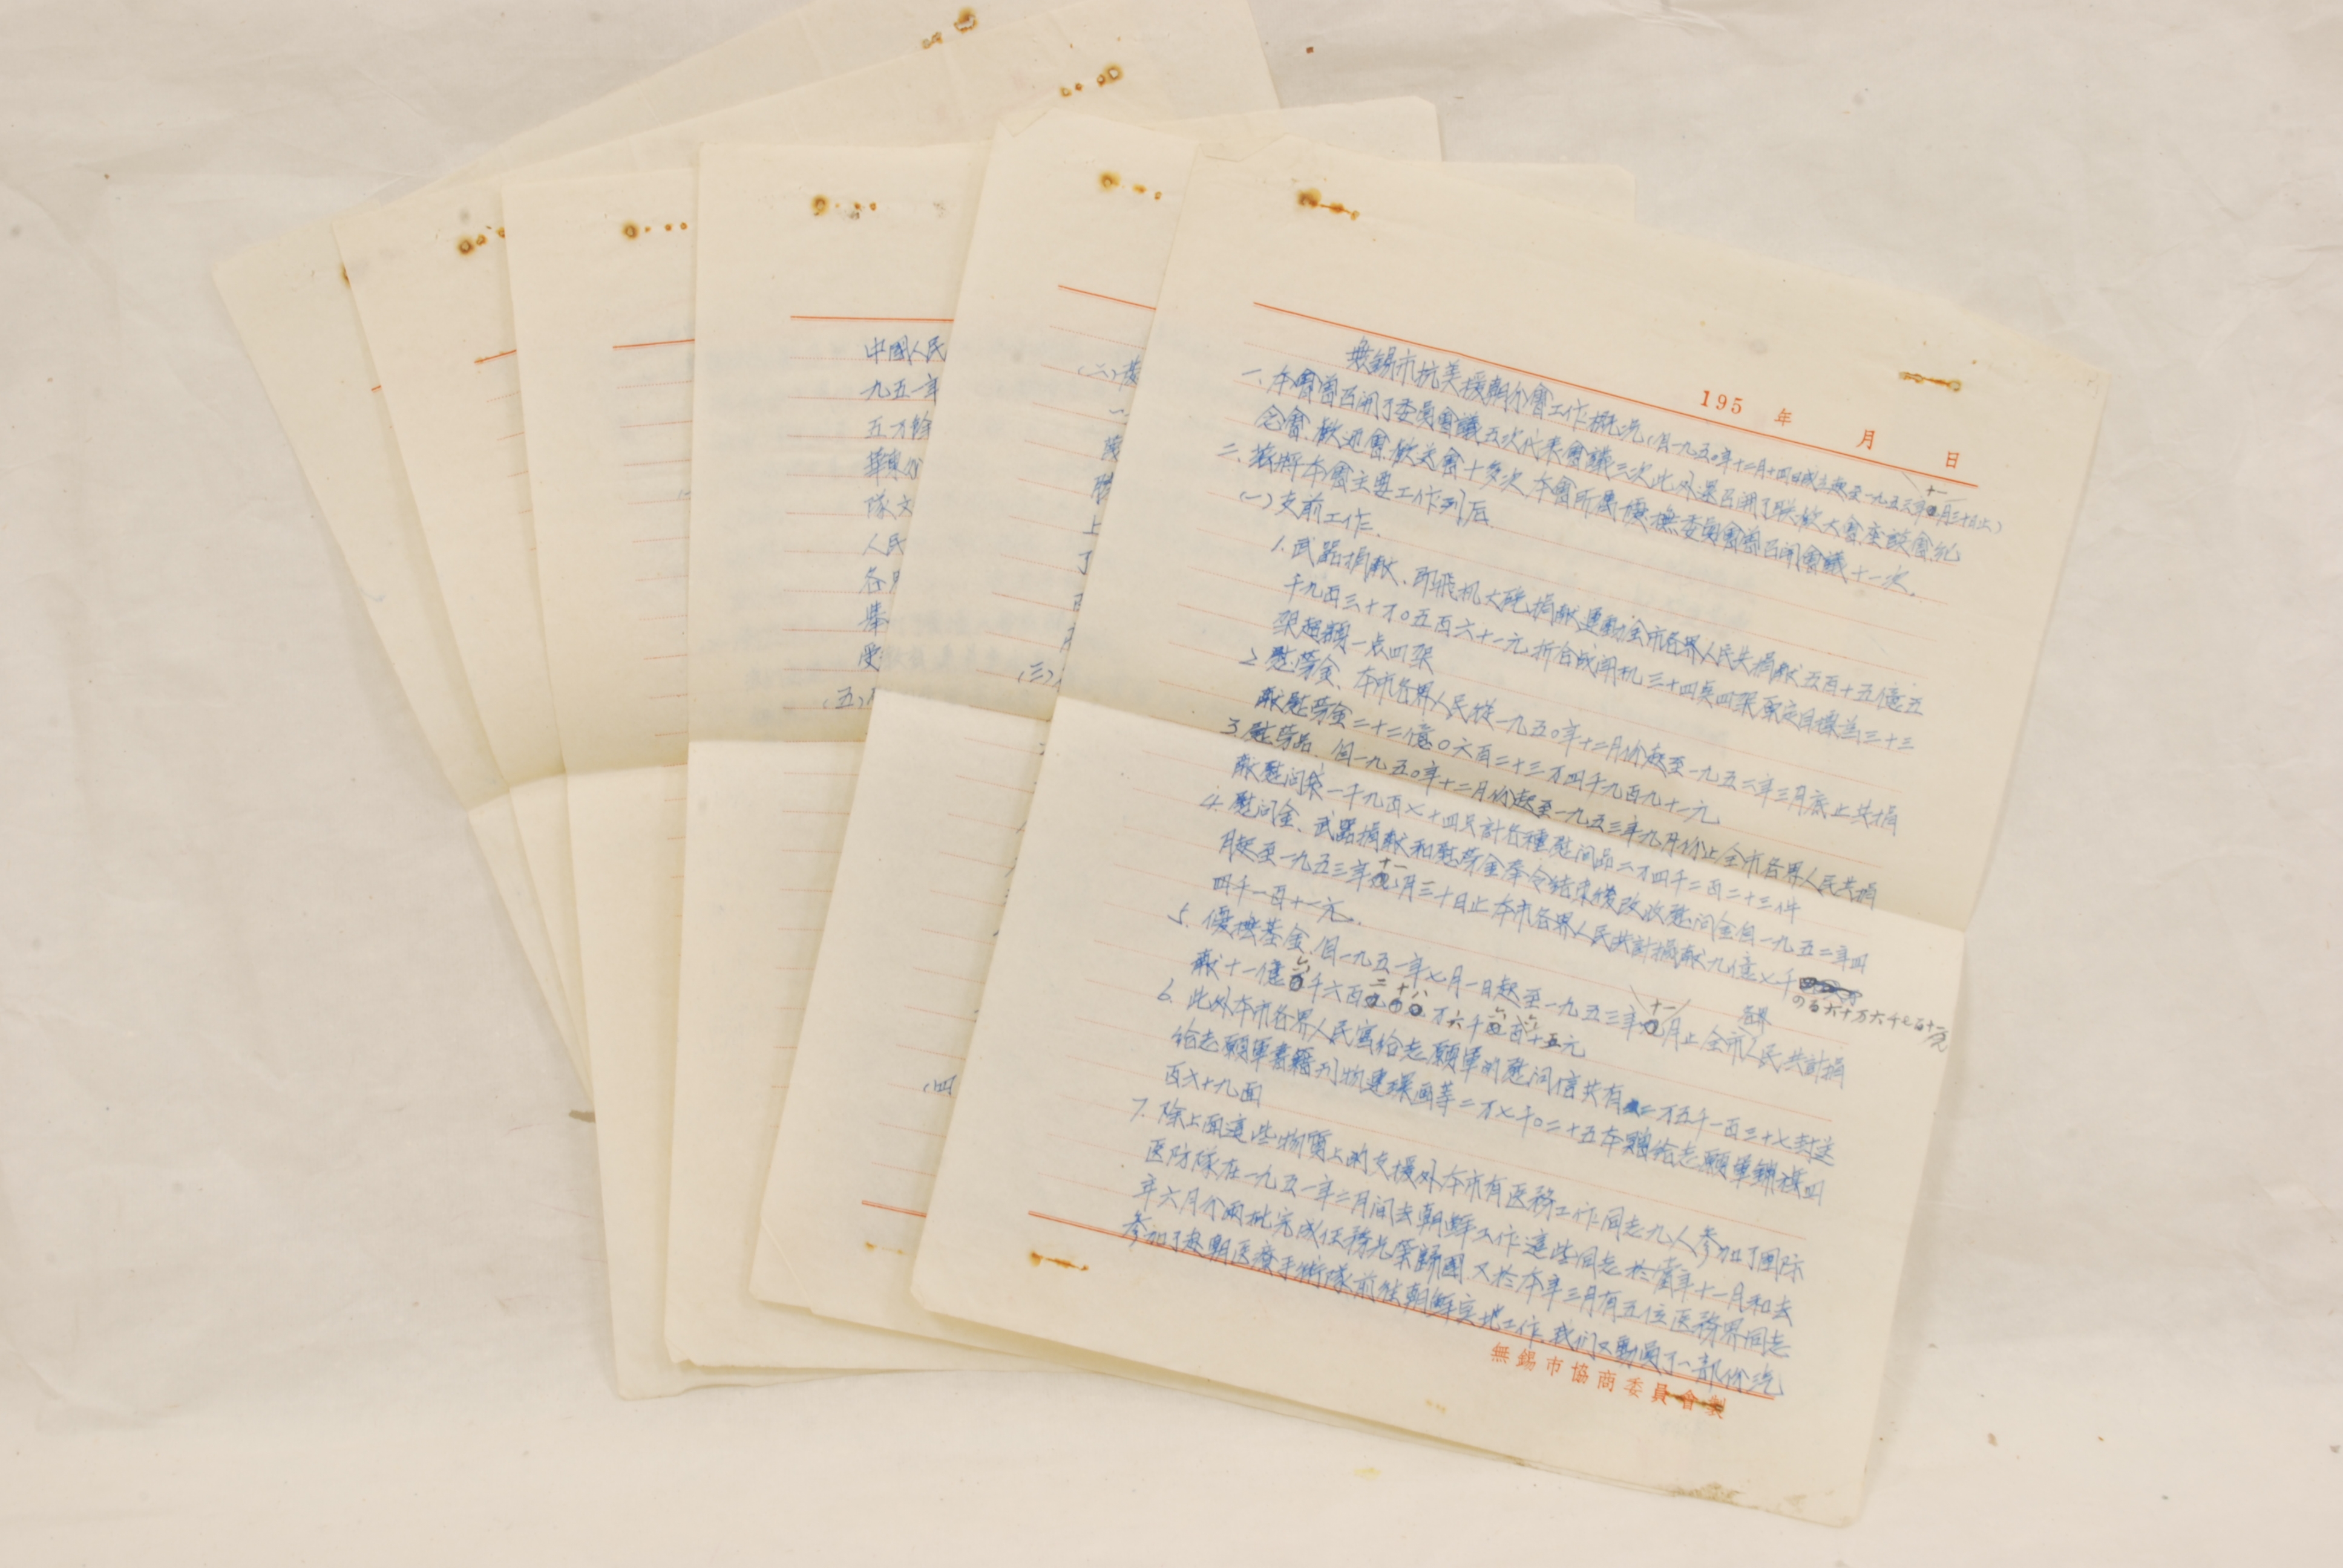 195 年 月 日
無錫市抗美援朝分會工作概況(自一九五〇年十二月十四日成立起至一九五三年十一月三十日止)
一、本會曾召開了委員會議五次代表會議三次此外還召開了歡大會座談會紀
念會、歡迎會歡送會十多次、本會所屬優撫委員會曾召開會議十一次。
二、茲將本會主要工作列后
(一)支前工作.
1.武器捐献、即飛机大砲捐献運動全市各界人民共捐献五百十五億五
千九百三十万〇五百六十一元,折合战闘机三十四點四架原定目標為三十三
架超額一点四架
2.慰劳金、本市各界人民從一九五〇年十二月份起至一九五二年三月底止共捐
献慰劳金二十二億〇六百二十三万四千九百九十一元
3.慰劳品、自一九五〇年十二月份起至一九五三年九月份止全市各界人民共捐
献慰問袋一千九百七十四只計各種慰问品二万四千二百二十三件
4.慰问金、武器捐献和慰劳金奉令结束後改收慰问金自一九五二年四
月起至一九五三年十一月三十日止本市各界人民共計捐献九億七千
四百六十万六千七百十一元
四千一百十一元.
5.優撫基金,自一九五一年七月一日起至一九五三年十一月止全市各界人民共計捐
献十一億六千六百二十八万六千六百十五元
6.此外本市各界人民寫给志願軍的慰问信共有二万五千一百三十七封送
给志願軍書籍刊物連環画等二万七千〇二十五本贈给志願軍錦旗四
百六十九面
7.除上面這些物質上的支援外本市有医務工作同志九人參加了国际
医防隊在一九五一年二月间去朝鮮工作這些同志於當年十一月和去
年六月分兩批完成任務光荣歸國,又於本年三月有五位医務界同志
參加了赴朝医療手術隊前往朝鮮实地工作,我们又動員了一部份汽
無錫市協商委員會製
(二)
一
上
了
(三)
(四
中國人民
九五一年
五万餘
隊文
人民
各
(五)